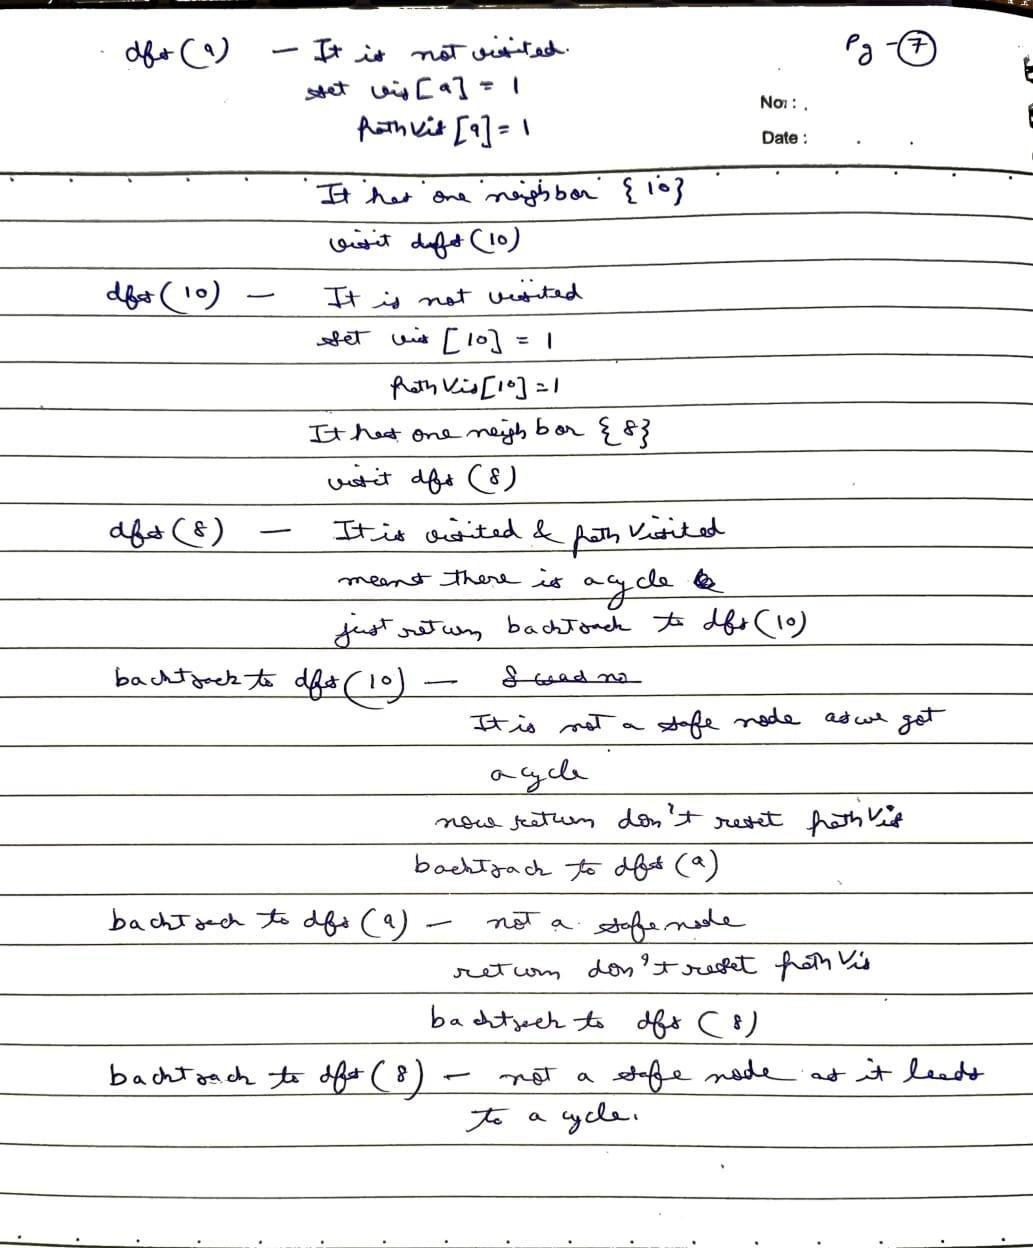 dfs(9) — It is not visited.
Pg - 7
set vis[9] = 1
No: .
pathVis[9] = 1
Date :
It has one neighbor {10}
visit dfs(10)
dfs(10) — It is not visited
set vis [10] = 1
pathVis[10] = 1
It has one neighbor {8}
visit dfs (8)
dfs(8) — It is visited & path Visited
means there is a cycle &
just return backtrack to dfs(10)
backtrack to dfs(10) —
It is not a safe node as we got
a cycle
now return don't reset pathVis
backtrack to dfs(9)
backtrack to dfs(9) — not a safe node
return don't reset pathVis
backtrack to dfs (8)
backtrack to dfs(8) — not a safe node as it leads
to a cycle.